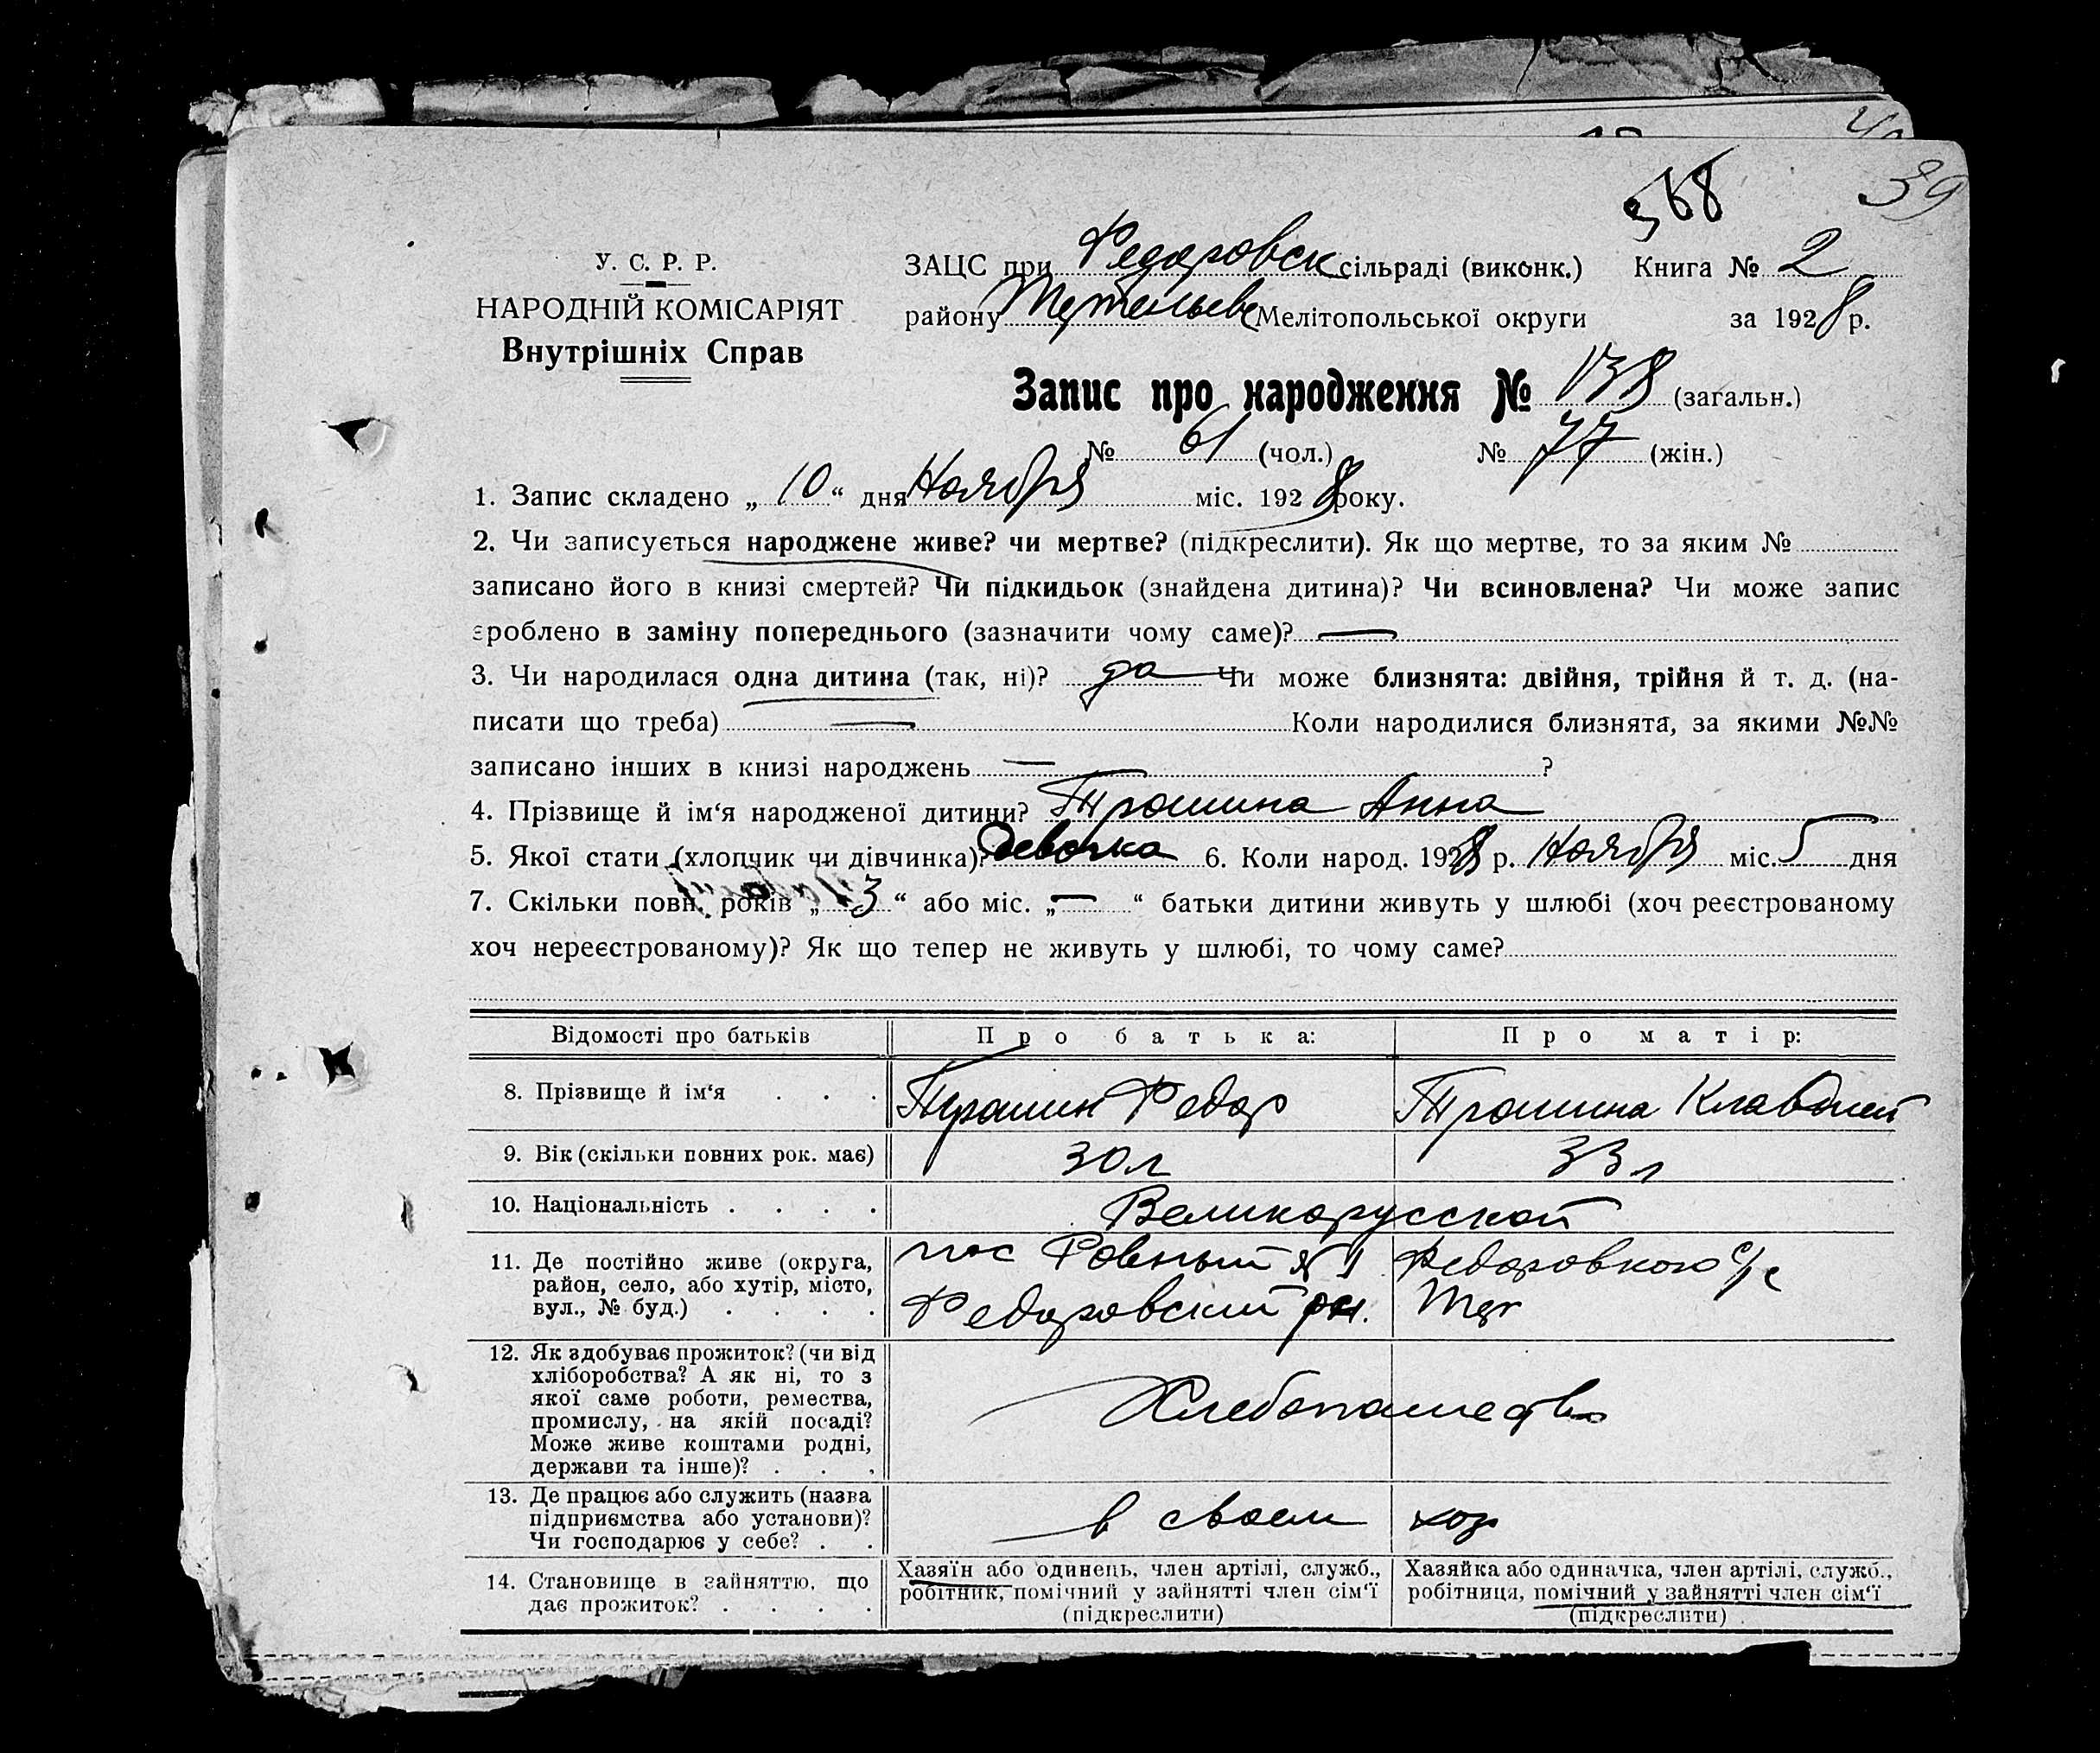 39
568
У. С. Р. Р.
НАРОДНІЙ КОМІСАРІЯТ
Внутрішніх Справ
ЗАЦС при Федоровск сільраді (виконк.) Книга № 2
району Мелітопольської округи за 1928 р.
Запис про народження № 138 (загальн.)
№ 61 (чол.) № 77 (жін.)
1. Запис складено „ 10 “ дня Ноября міс. 1928 року.
2. Чи записується народжене живе? чи мертве? (підкреслити). Як що мертве, то за яким №
записано його в книзі смертей? Чи підкидьок (знайдена дитина)? Чи всиновлена? Чи може запис
зроблено в заміну попереднього (зазначити чому саме)? —
3. Чи народилася одна дитина (так, ні)? да Чи може близнята: двійня, трійня й т. д. (на-
писати що треба) — Коли народилися близнята, за якими №№
записано інших в книзі народжень — ?
4. Прізвище й ім‘я народженої дитини? Трошина Анна
5. Якої стати (хлопчик чи дівчинка)? девочка 6. Коли народ. 1928 р. Ноября міс. 5 дня
7. Скільки повн. років „ 3 “ або міс. „ — “ батьки дитини живуть у шлюбі (хоч реєстрованому
хоч нереєстрованому)? Як що тепер не живуть у шлюбі, то чому саме?
Відомості про батьків Про батька: Про матір:
8. Прізвище й ім‘я . . . Трошин Федор Трошина Клавдией
9. Вік (скільки повних рок. має) 30 л 33 л
10. Національність . . . . Великорусской
11. Де постійно живе (округа, район, село, або хутір, місто, вул., № буд.) . . . . пос Ровный № 1 Федоровского с/с
Федоровский рн.
12. Як здобуває прожиток? (чи від хліборобства? А як ні, то з якої саме роботи, ремества, промислу, на якій посаді? Може живе коштами родні, держави та інше)? . . . Хлебопашество
13. Де працює або служить (назва підприємства або установи)? Чи господарює у себе? . . в своем хоз
14. Становище в зайняттю, що дає прожиток? . . . . Хазяїн або одинець, член артілі, служб., робітник, помічний у зайнятті член сім‘ї (підкреслити) Хазяйка або одиначка, член артілі, служб., робітниця, помічний у зайнятті член сім‘ї (підкреслити)